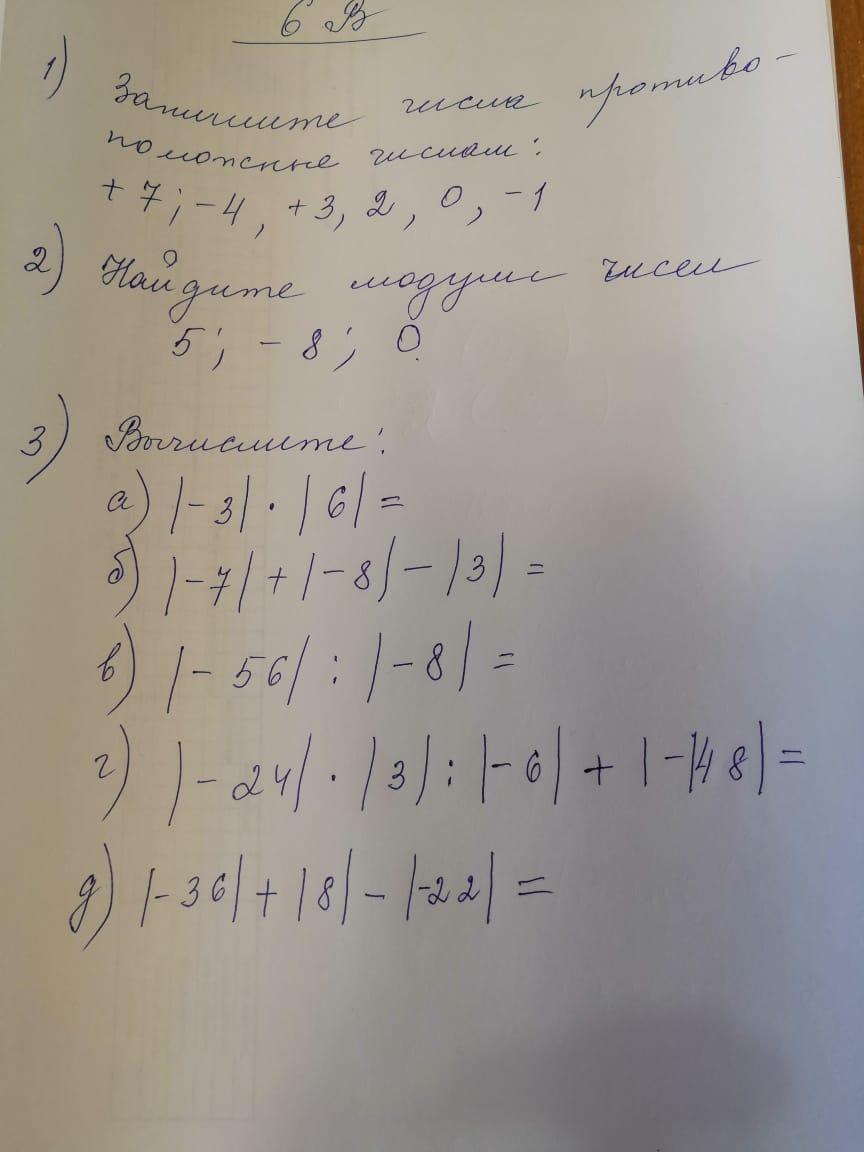 6 В
1) Запишите числа противо-
положные числам:
+7; -4, +3, 2, 0, -1
2) Найдите модули чисел
5; -8; 0.
3) Вычислите:
а) |-3| · |6| =
б) |-7| + |-8| - |3| =
в) |-56| : |-8| =
г) |-24| · |3| : |-6| + |-148| =
д) |-36| + |8| - |-22| =